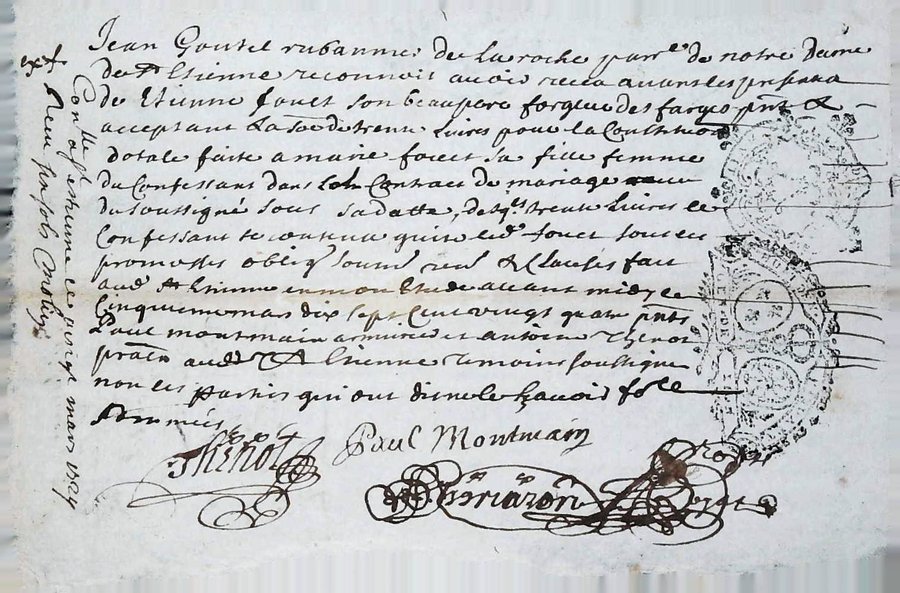 Jean Goutel rubannier de Laroche parr.e de notre Dame
de St Etienne reconnoit avoir receu avant les presentes
de Etienne fouet son beaupere forgeur des farges pnt &
acceptant La so.e de trente Livres pour la Constitution
dotale faite a marie fouet sa fille femme
du Confessant dans leur Contract de mariage receu
du soussigné sous sa datte, de qs trente Livres le
Confessant se contente quitte led. fouet sous les
promesses oblig soum ren & Clauses fait
aud St Etienne en mon Etude avant midy le
Cinquieme mars dix sept Cent vingt quatre pnts
Paul montmain armurier et antoine Thenot
praten aud St Etienne temoins soussignes
non les partis qui ont dit ne le scavoir
Sommés
Thenot Paul Montmain
Con.lle a St estienne le mars 1724
Receu six sols